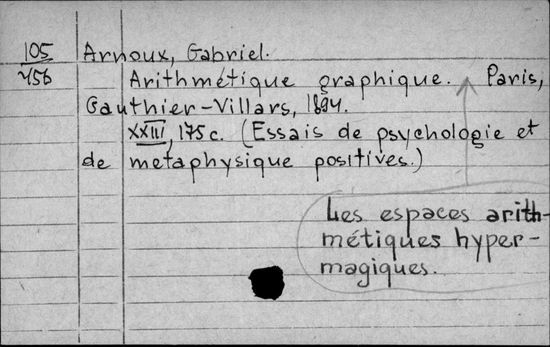 105
456
Arnoux, Gabriel.
Arithmétique graphique. Paris,
Gauthier-Villars, 1894.
XXIII, 175 c. (Essais de psychologie et
de métaphysique positives.)
Les espaces arith-
métiques hyper-
magiques.